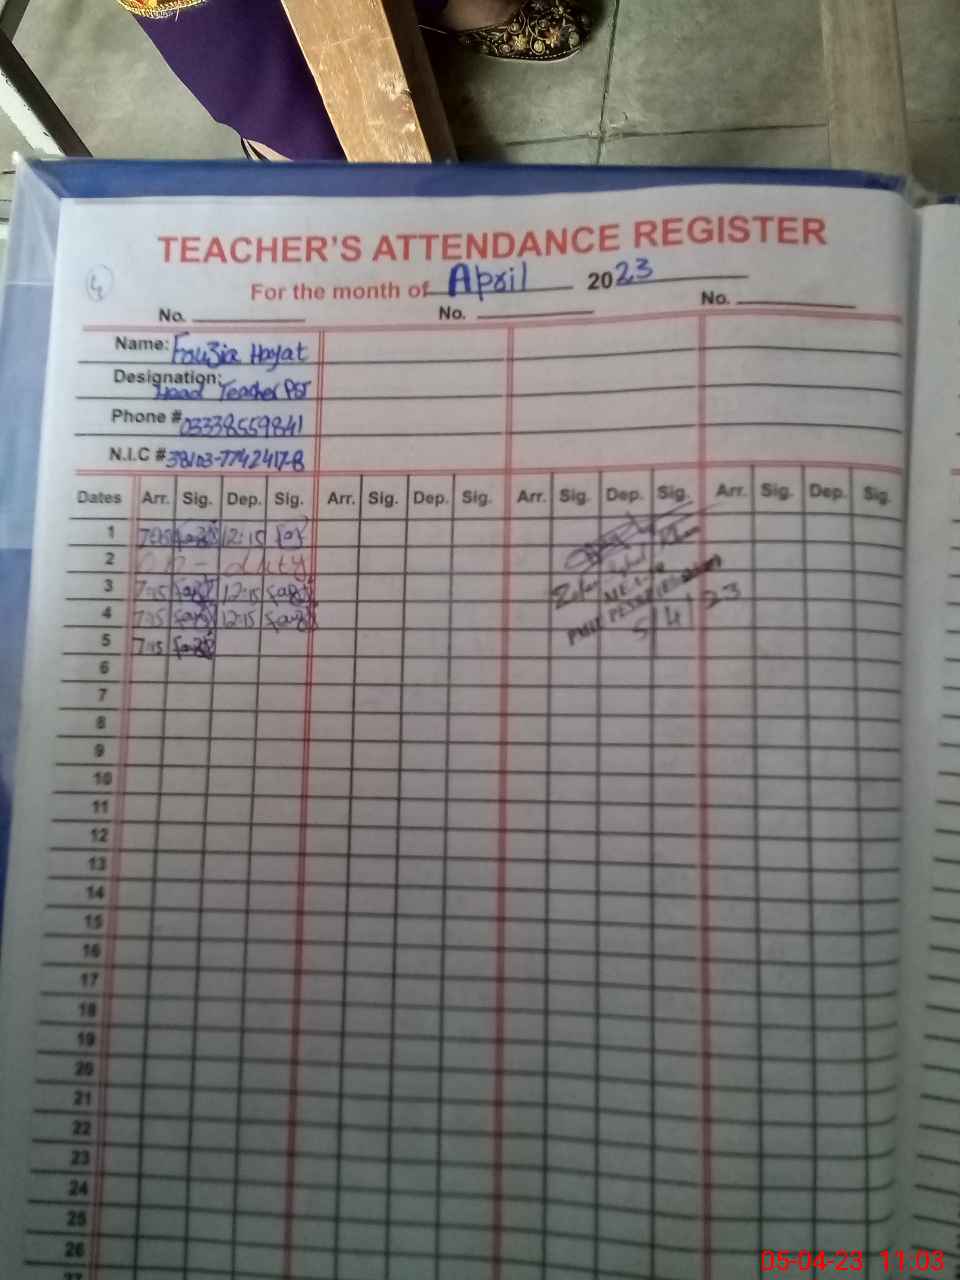 TEACHER'S ATTENDANCE REGISTER
4
For the month of April 2023
No. No. No.
Name: Fouzia Hayat
Designation: Head Teacher PST
Phone # 03338559841
N.I.C # 38103-7742417-8
Dates Arr. Sig. Dep. Sig. Arr. Sig. Dep. Sig. Arr. Sig. Dep. Sig. Arr. Sig. Dep. Sig.
1 12:15
2 On - duty
3 7:45 12:15
4 7:45 12:15
5 7:45
5/4/23
6
7
8
9
10
11
12
13
14
15
16
17
18
19
20
21
22
23
24
25
26
27
05-04-23 11:03